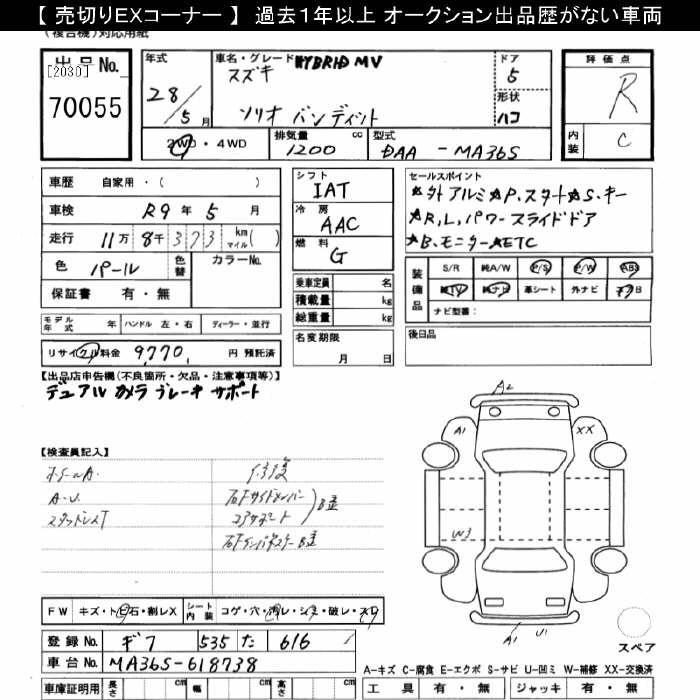 【 売切りEXコーナー 】 過去1年以上 オークション出品歴がない車両
(複合機)対応用紙
出品No.
[2030]
70055
年式
28/5月
車名・グレード HYBRID MV
スズキ
ソリオ バンディット
ドア
5
形状
ハコ
評価点
R
内装
C
2WD・4WD
排気量
1200 cc
型式
DAA - MA36S
車歴 自家用・( )
車検 R9年 5月
走行 11万 8千 373 km マイル( )
色 パール
色替
カラーNo.
保証書 有・無
シフト
IAT
冷房
AAC
燃料
G
乗車定員 名
積載量 kg
総重量 kg
セールスポイント
★外アルミ★P.スタート★S.キー
★R,L,パワースライドドア
★B.モニター★ETC
装備品
S/R 純A/W P/S P/W ABS
純TV 純ナビ 革シート 外ナビ
ナビ型番:
モデル年式 年 ハンドル 左・右 ディーラー・並行
リサイクル料金 9,770 円 預託済
名変期限
月 日
後日品
【出品店申告欄(不良箇所・欠品・注意事項等)】
デュアル カメラ ブレーキ サポート
【検査員記入】
A.U.
スタッドレスT
修復
右Fサイドメンバー
コアサポート
B歪
右Fインナー
B歪
A2
A1
XX
W3
A1
U1
スペア
FW キズ・ト石・割レX
シート内装 コゲ・穴・汚レ・シミ・破レ・スレ
登録No. ギフ 535 た 616
車台No. MA36S-618738
車庫証明用 長さ cm 幅 cm 高さ cm
A-キズ C-腐食 E-エクボ S-サビ U-凹ミ W-補修 XX-交換済
工具 有・無 ジャッキ 有・無